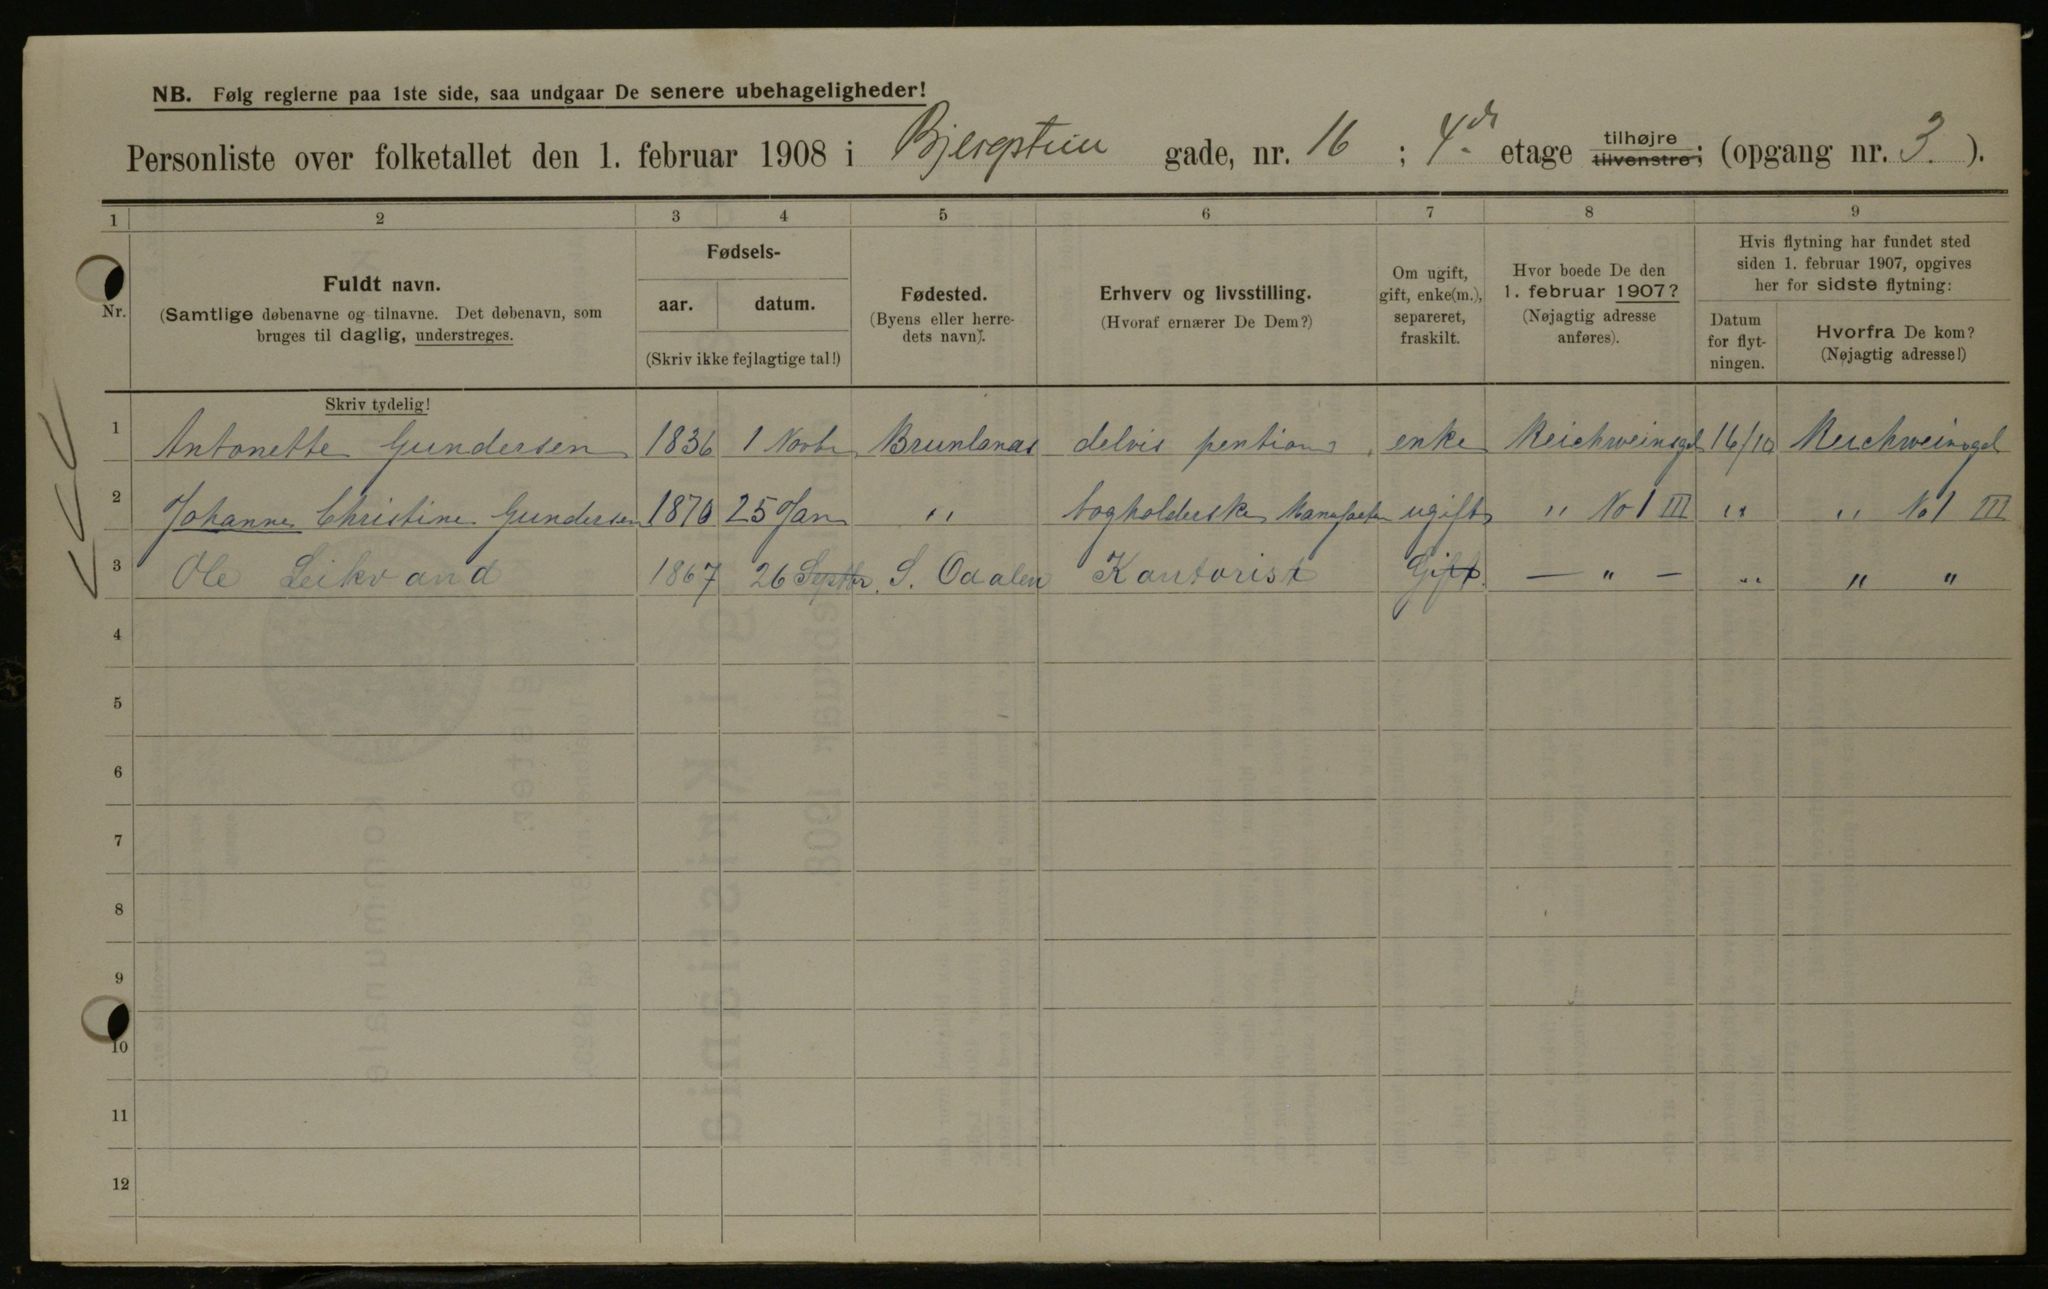 NB. Følg reglerne paa 1ste side, saa undgaar De senere ubehageligheder!
Personliste over folketallet den 1. februar 1908 i Bjergstien gade, nr. 16 ; 4de etage tilhøjre tilvenstre; (opgang nr. 3. ).
1 2 3 4 5 6 7 8 9
Nr.
Fuldt navn.
(Samtlige døbenavne og tilnavne. Det døbenavn, som
bruges til daglig, understreges.
Skriv tydelig!
Fødsels-
aar. datum.
(Skriv ikke fejlagtige tal!)
Fødested.
(Byens eller herre-
dets navn).
Erhverv og livsstilling.
(Hvoraf ernærer De Dem?)
Om ugift,
gift, enke(m.),
separeret,
fraskilt.
Hvor boede De den
1. februar 1907?
(Nøjagtig adresse
anføres).
Hvis flytning har fundet sted
siden 1. februar 1907, opgives
her for sidste flytning:
Datum
for flyt-
ningen.
Hvorfra De kom?
(Nøjagtig adresse!)
1 Antonette Gundersen 1836 1 Novbr Brunlanæs delvis pention enke Reichweinsgd 16/10 Reichweinsgd
2 Johanne Christine Gundersen 1870 25 Jan " bogholderske ugift " No 1 III " " No 1 III
3 Ole Leikvand 1867 26 Septbr. S. Odalen Kantorist Gift. — " — " " "
4
5
6
7
8
9
10
11
12